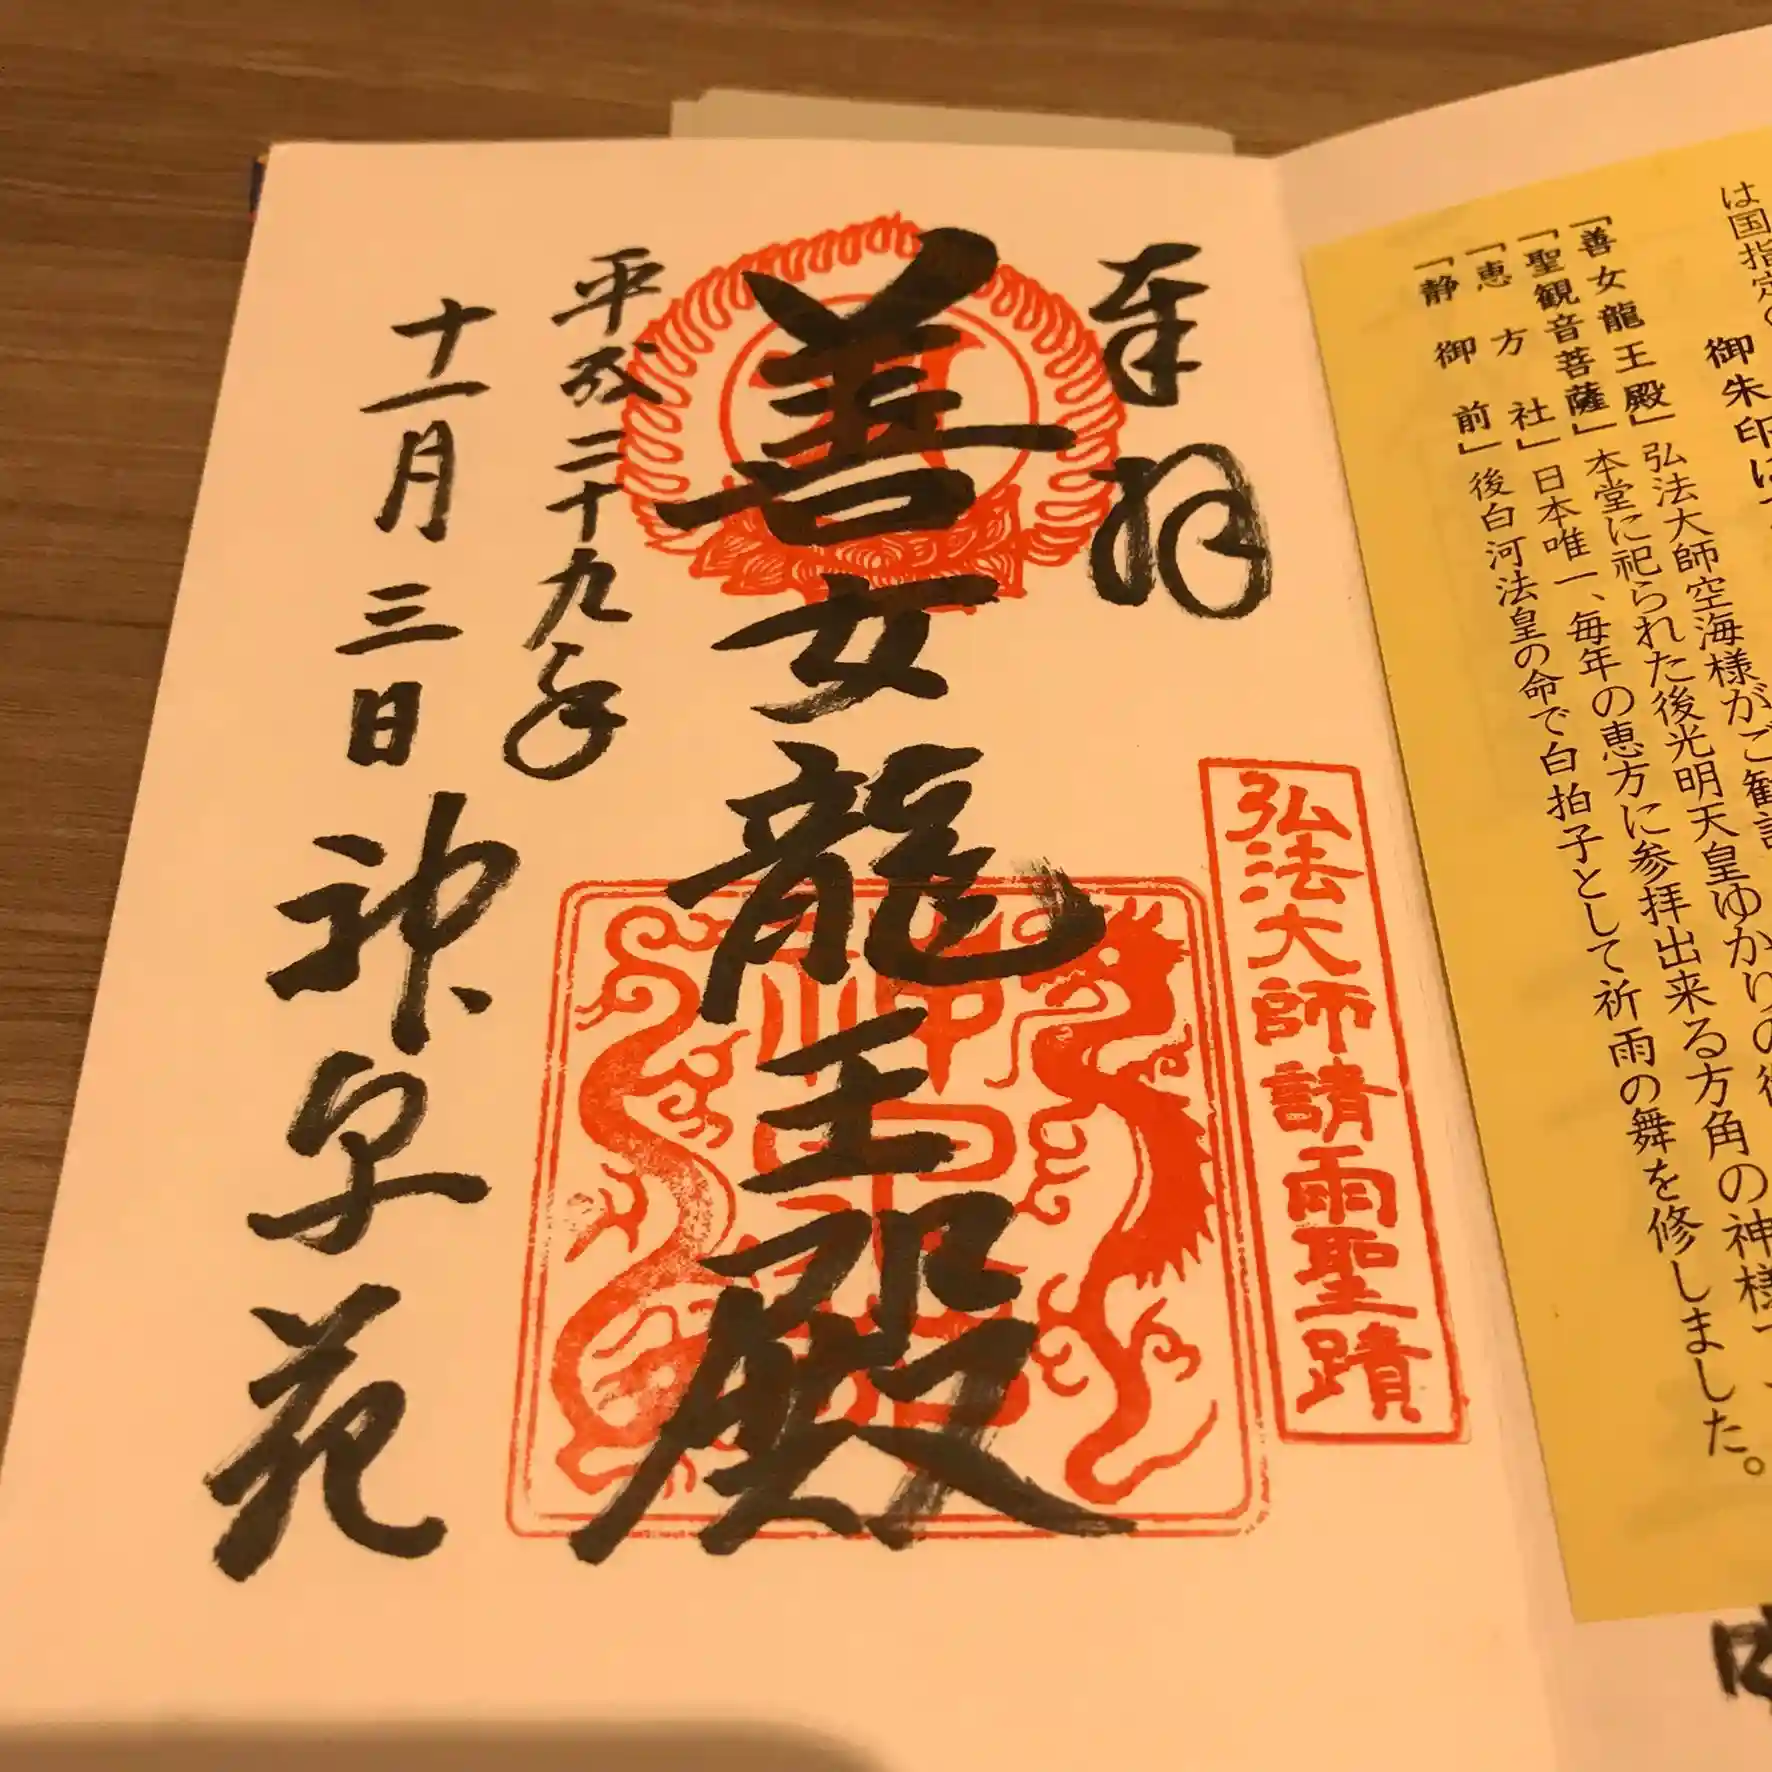 は国指定
御朱印は
「善女龍王殿」弘法大師空海様がご勧請
「聖観音菩薩」本堂に祀られた後光明天皇ゆかりの
「恵方社」日本唯一、毎年の恵方に参拝出来る方角の神様
「静御前」後白河法皇の命で白拍子として祈雨の舞を修しました。
奉拝
弘法大師請雨聖蹟
善女龍王殿
平成二十九年
十一月三日 神泉苑